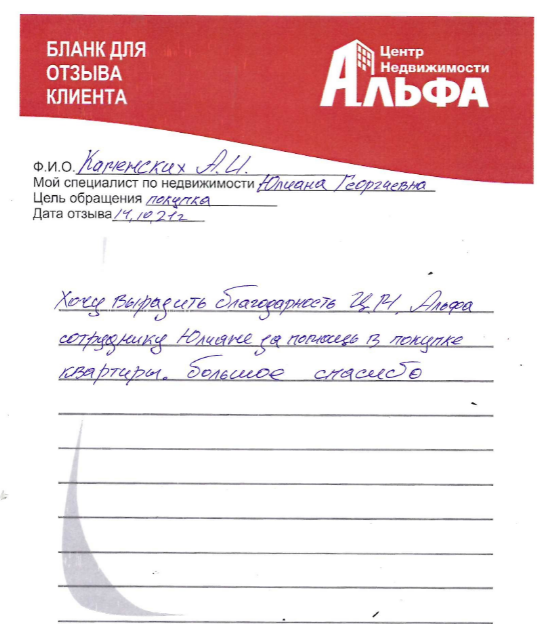 БЛАНК ДЛЯ
ОТЗЫВА
КЛИЕНТА
Центр
Недвижимости
АЛЬФА
Ф.И.О. Каменских А.И.
Мой специалист по недвижимости Юлиана Георгиевна
Цель обращения покупка
Дата отзыва 14.10.21г
Хочу выразить благодарность Ц.Н. Альфа
сотруднику Юлиане за помощь в покупке
квартиры. большое спасибо